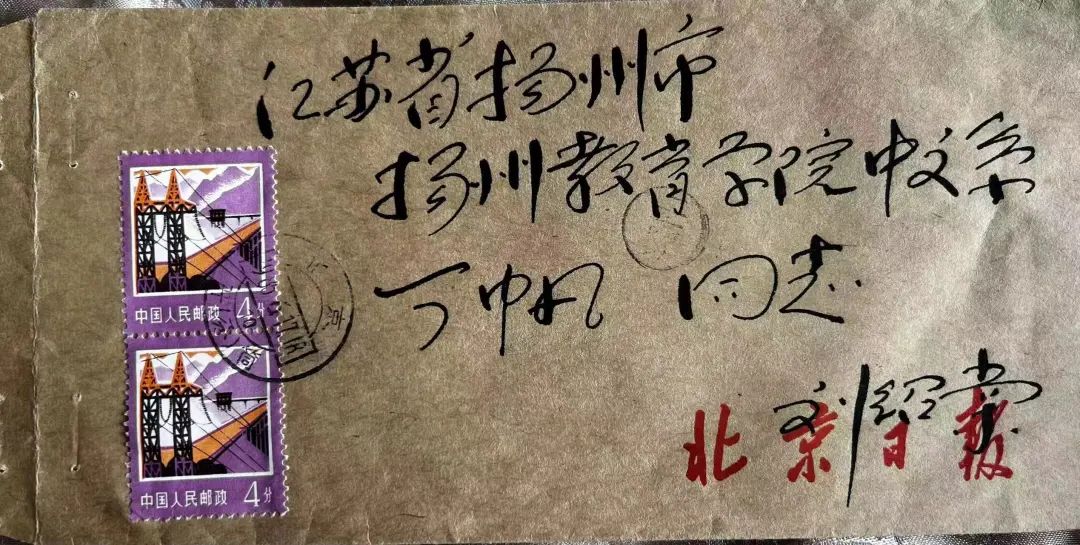 江苏省扬州市
扬州教育学院中文系
丁帆 同志
刘绍棠
北京日报
4分
中国人民邮政
4分
中国人民邮政